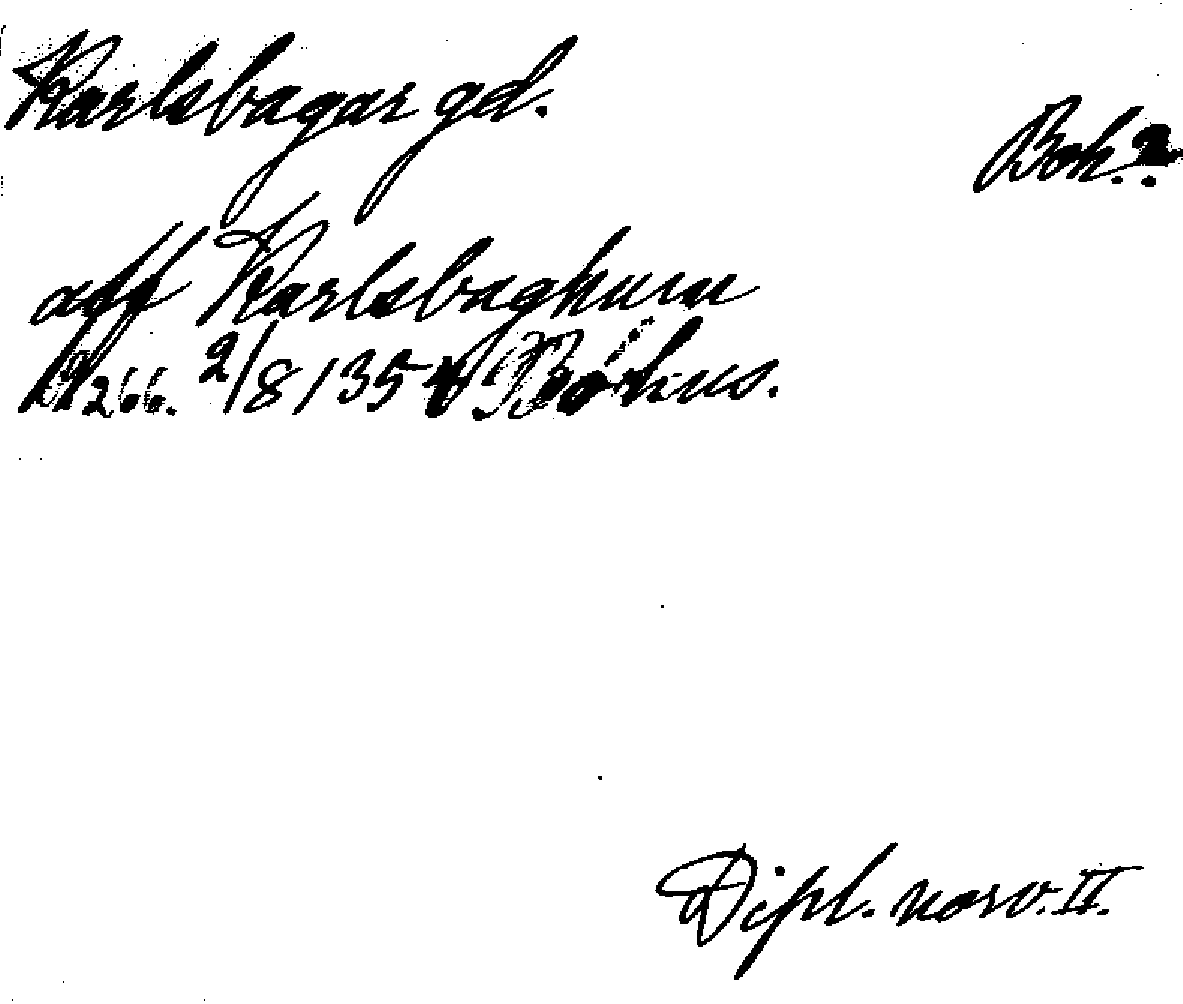 Karlsbagar gd.
Boh.?
aff Karlsbaghum
266. 2/8 1354 Bohus.
Dipl. norv. II.